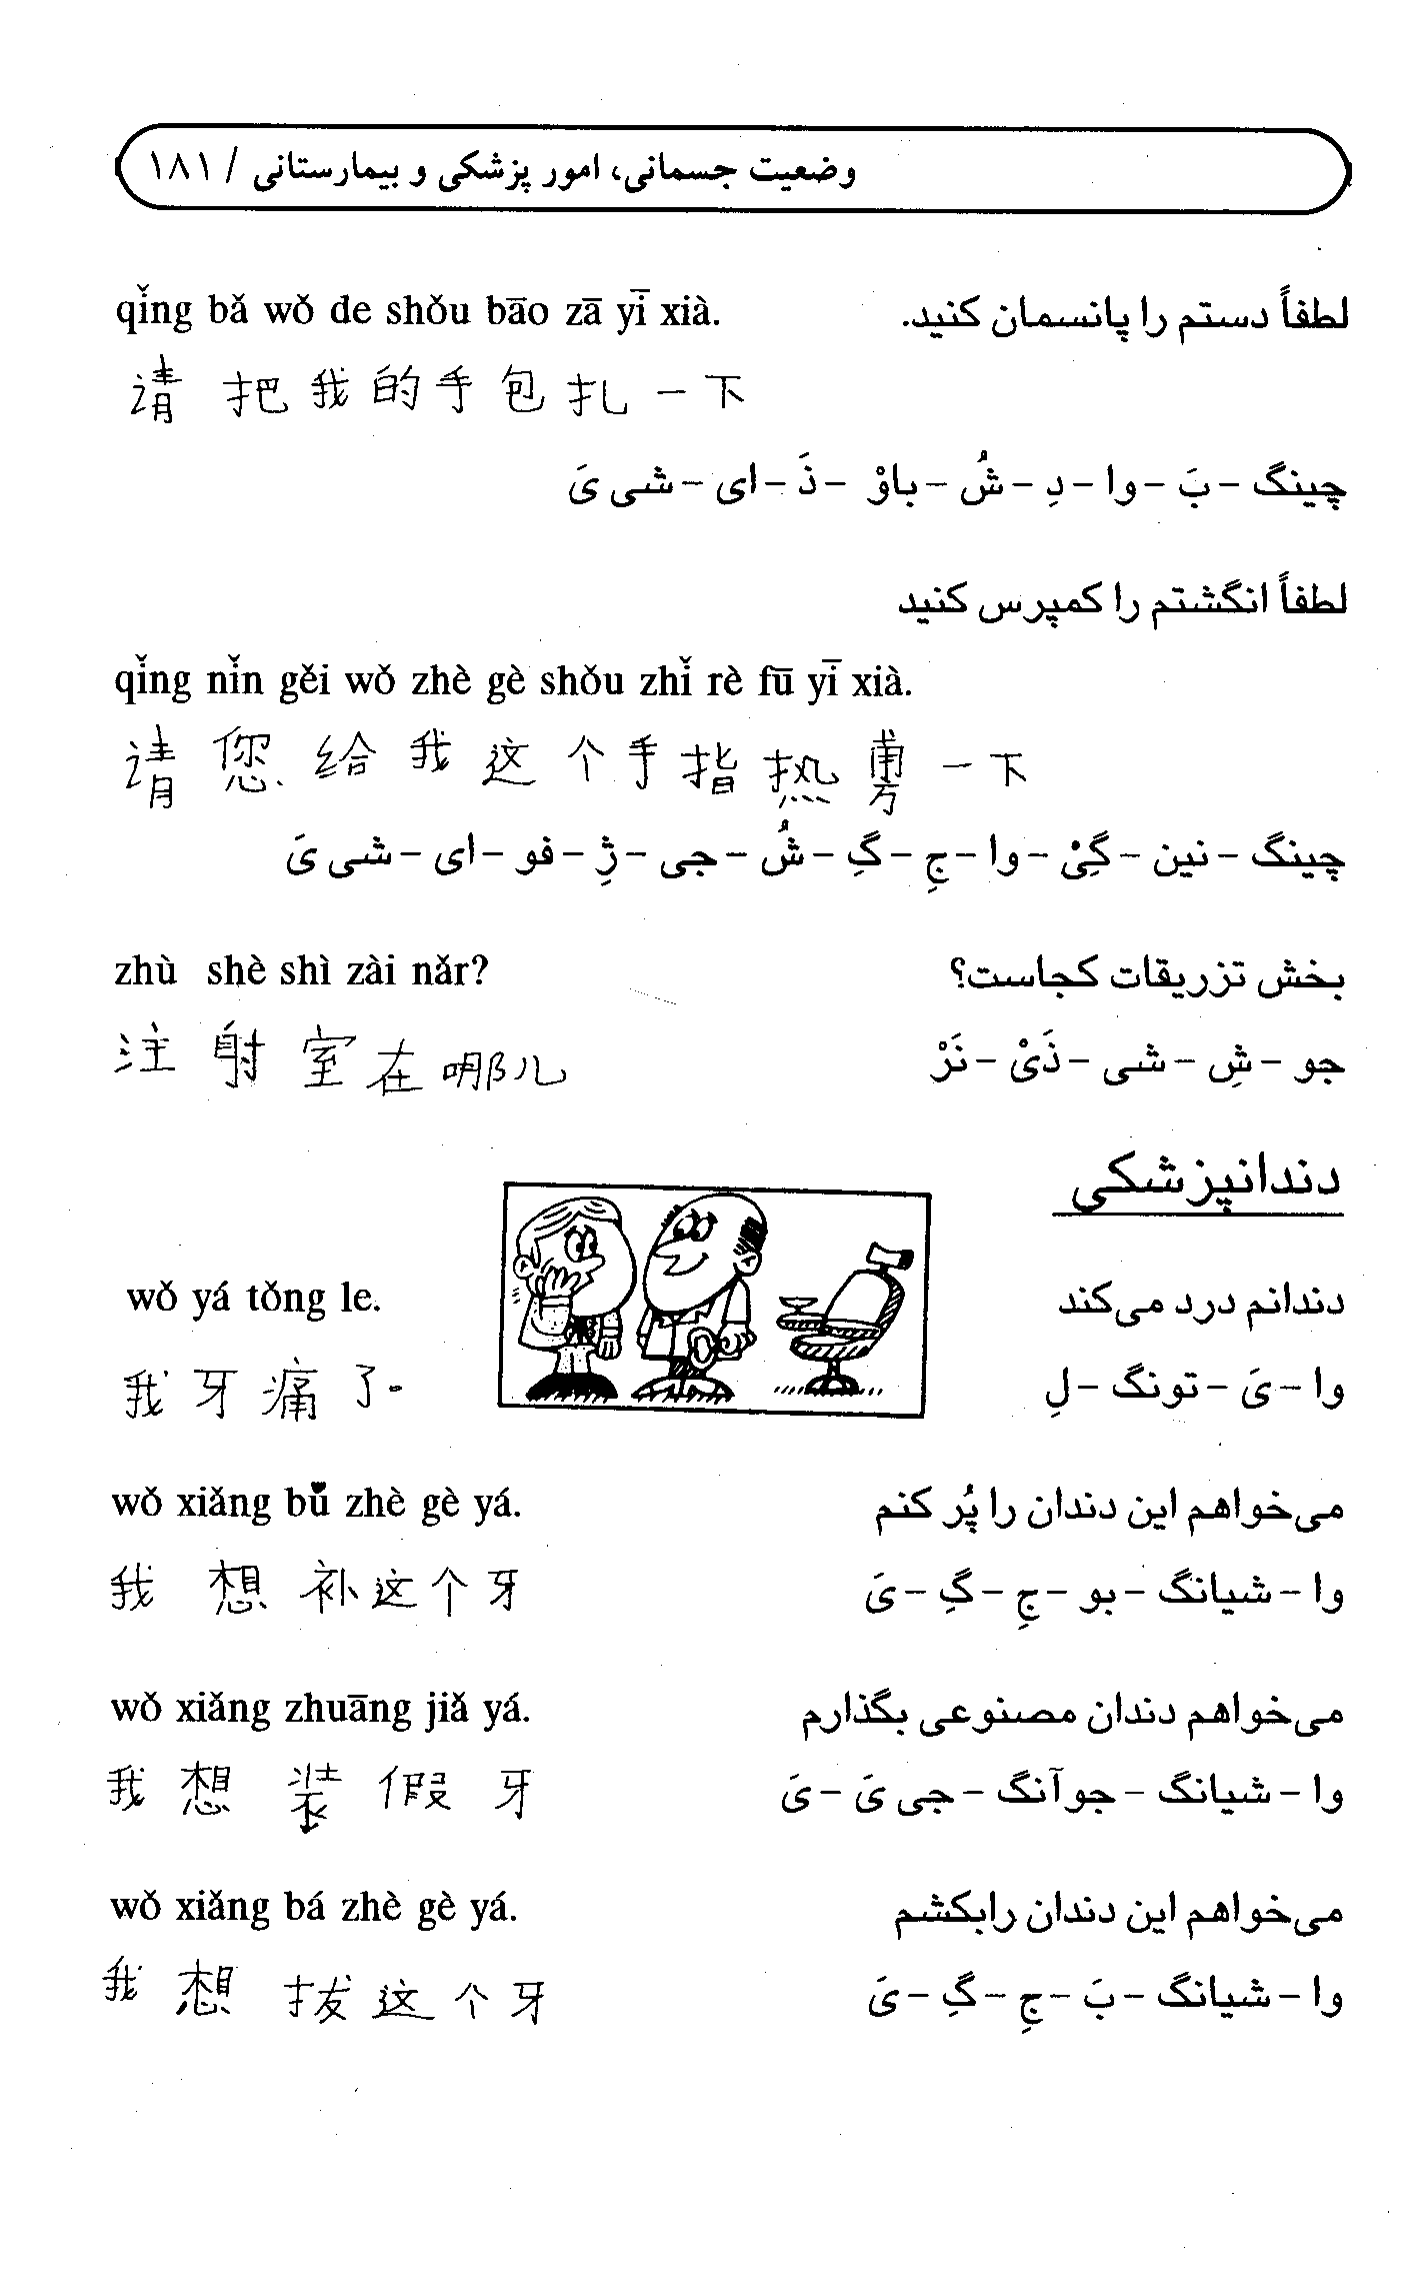 وضعیت جسمانی، امور پزشکی و بیمارستانی / ۱۸۱
لطفاً دستم را پانسمان کنید.
qǐng bǎ wǒ de shǒu bāo zā yī xià.
请 把 我 的 手 包 扎 一 下
چینگ - بَ - وا - دِ - شُ - باوْ - ذَ - ای - شی یَ
لطفاً انگشتم را کمپرس کنید
qǐng nǐn gěi wǒ zhè gè shǒu zhǐ rè fū yī xià.
请 您 给 我 这 个 手 指 热 一 下
چینگ - نین - گِیْ - وا - جِ - گِ - شُ - جی - ژِ - فو - ای - شی یَ
بخش تزریقات کجاست؟
zhù shè shì zài nǎr?
注 射 室 在 哪儿
جو - شِ - شی - ذَیْ - نَرْ
دندانپزشکی
دندانم درد می‌کند
wǒ yá tǒng le.
我 牙 痛 了
وا - یَ - تونگ - لِ
می‌خواهم این دندان را پُر کنم
wǒ xiǎng bǔ zhè gè yá.
我 想 补 这 个 牙
وا - شیانگ - بو - جِ - گِ - یَ
می‌خواهم دندان مصنوعی بگذارم
wǒ xiǎng zhuāng jiǎ yá.
我 想 装 假 牙
وا - شیانگ - جوآنگ - جی یَ - یَ
می‌خواهم این دندان رابکشم
wǒ xiǎng bá zhè gè yá.
我 想 拔 这 个 牙
وا - شیانگ - بَ - جِ - گِ - یَ